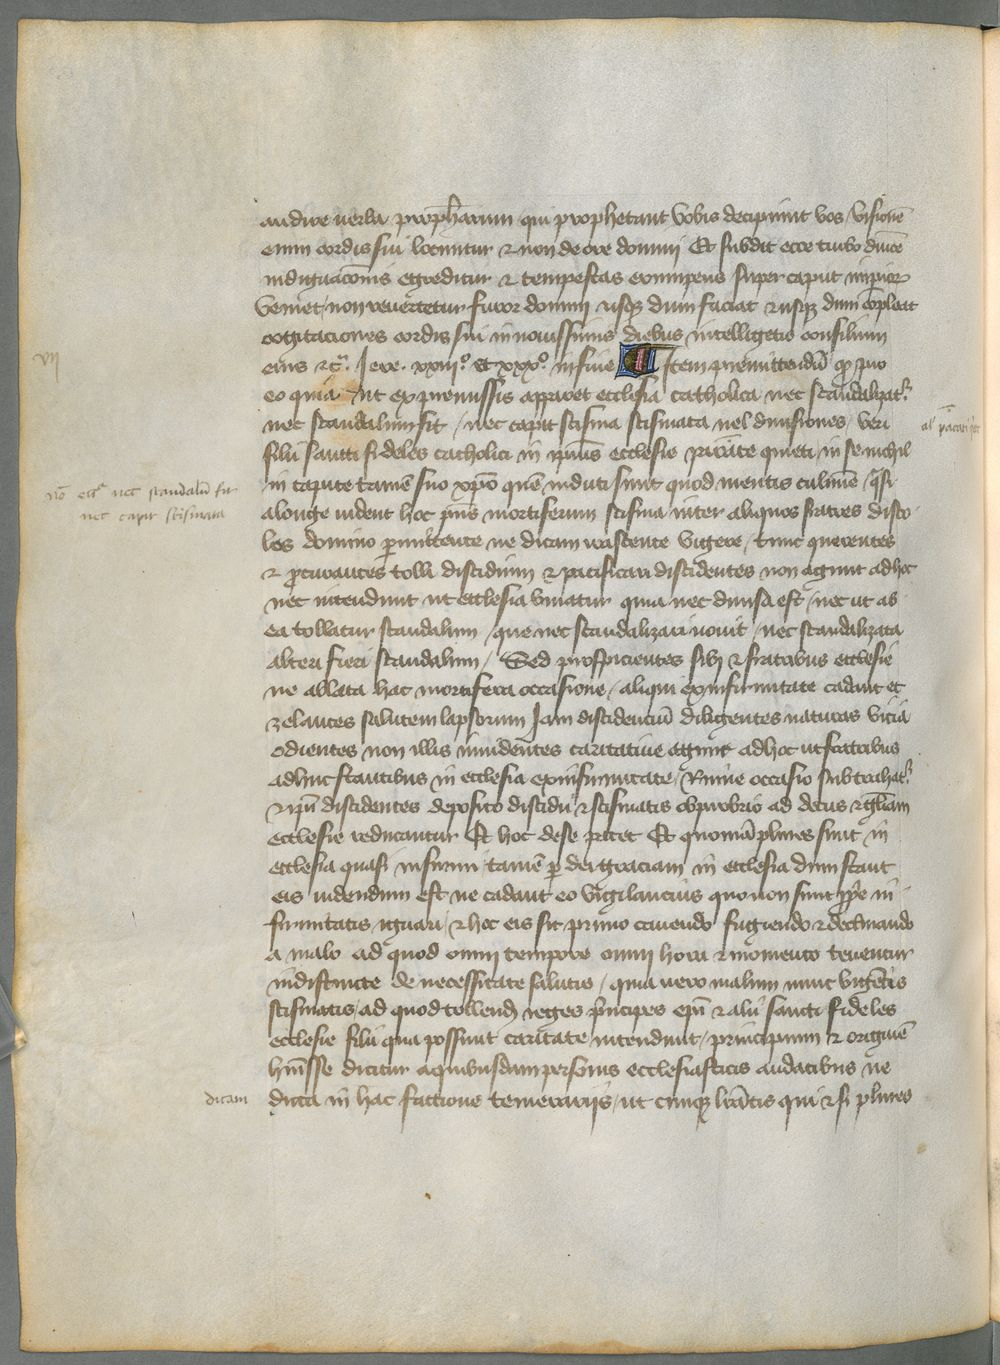 audire uerba prophetarum qui prophetant vobis et decipiunt vos visionē
enim cordis sui locuntur & non de ore domini Et subdit ecce turbo dn̄ice
indignacōnis egreditur & tempestas erumpens super caput impior
veniet non reuertetur furor domini usq dum faciat & usq dum cōpleat
cogitaciones cordis sui in nouissimis diebus intelligetis consilium
eius &c. Jere. xxiii.º et xxx.º in fine Item premittendū
VII
eo quia ut ex premissis apparet ecclesia catholica nec scandalizat
nec scandalum sit / nec capit scisma scismata uel diuisiones / veri
filii sancti fideles catholici in ipsius ecclesie caritate quieti in se nichil
in capite tamē suo xpō quē induti sunt quod mentis culmine q̄si
nō eccā nec scandalū sit
nec capit scismata
alonge uident hoc pn̄s mortiferum scisma inter aliquos fratres disco
los domino permittente ne dicam irascente vigere / tunc querentes
& procurantes tolli discidium & pacificari discidentes non agunt ad hoc
nec intendunt ut ecclesia vniatur quia nec diuisa est / nec ut ab
ea tollatur scandalum / que nec scandalizari nouit / nec scandalizata
alteri fieri scandalum / Sed prospicientes sibi & fratribus ecclesie
ne allata hac mortifera occasione / aliqui ex infirmitate cadant et
zelantes salutem lapsorum Jam discidenciū diligentes naturas vicia
odientes non illis inuidentes caritatiue agunt ad hoc ut fratribus
adhuc stantibus in ecclesia ex infirmitate / Ruine occasio subtrahat
& ipi discidentes deposito discidii & scismatis obprobrio ad decus & gl̄iam
ecclesie reducantur Et hoc de se patet Et quoniā plures sunt in
ecclesia quasi infirmi tamē per dei graciam in ecclesia dum stant
eis uidendum est ne cadant eo vigilancius quo non sunt pp̄e in
firmitatis ignari / & hoc eis fit primo cauendo fugiendo & declinando
a malo ad quod omni tempore omni hora & momento tenentur
indistincte de necessitate salutis / quia uero malum nunc vigentis
scismatis / ad quod tollend reges principes epī & alii sancti fideles
ecclesie filii qua possunt caritate intendunt / principium & originē
hui̅sse dicitur a quibusdam personis ecclesiasticis audacibus ne
dicam
dicta in hac factione temerariis / ut cunq lr̄atis qui & si plures